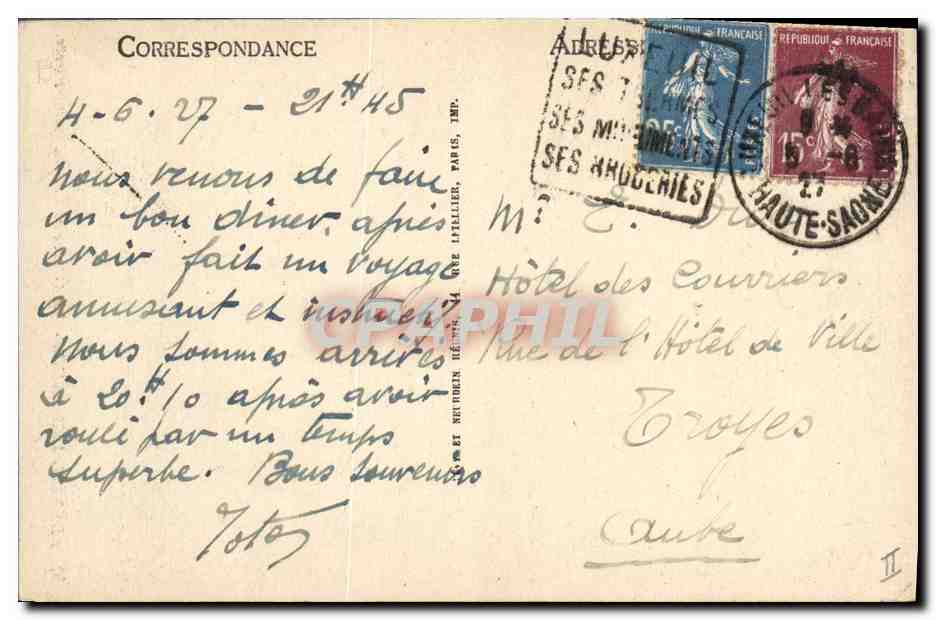 CORRESPONDANCE
4-6.27 - 21H45
Nous venons de faire
un bon dîner, après
avoir fait un voyage
amusant et instructif
Nous sommes arrivés
à 20H10 après avoir
roulé par un temps
superbe. Bons souvenirs
ET NEURDEIN RÉUNIS, 44 RUE LETELLIER, PARIS, IMP.
ADRESSE
SES THERMES
SES MONUMENTS
SES BRODERIES
REPUBLIQUE FRANÇAISE
25c
REPUBLIQUE FRANÇAISE
15c
LES
5 -6
27
HAUTE-SAONE
M. E.
Hôtel des Courriers
Rue de l'Hôtel de Ville
Troyes
Aube
II
CPAPHIL